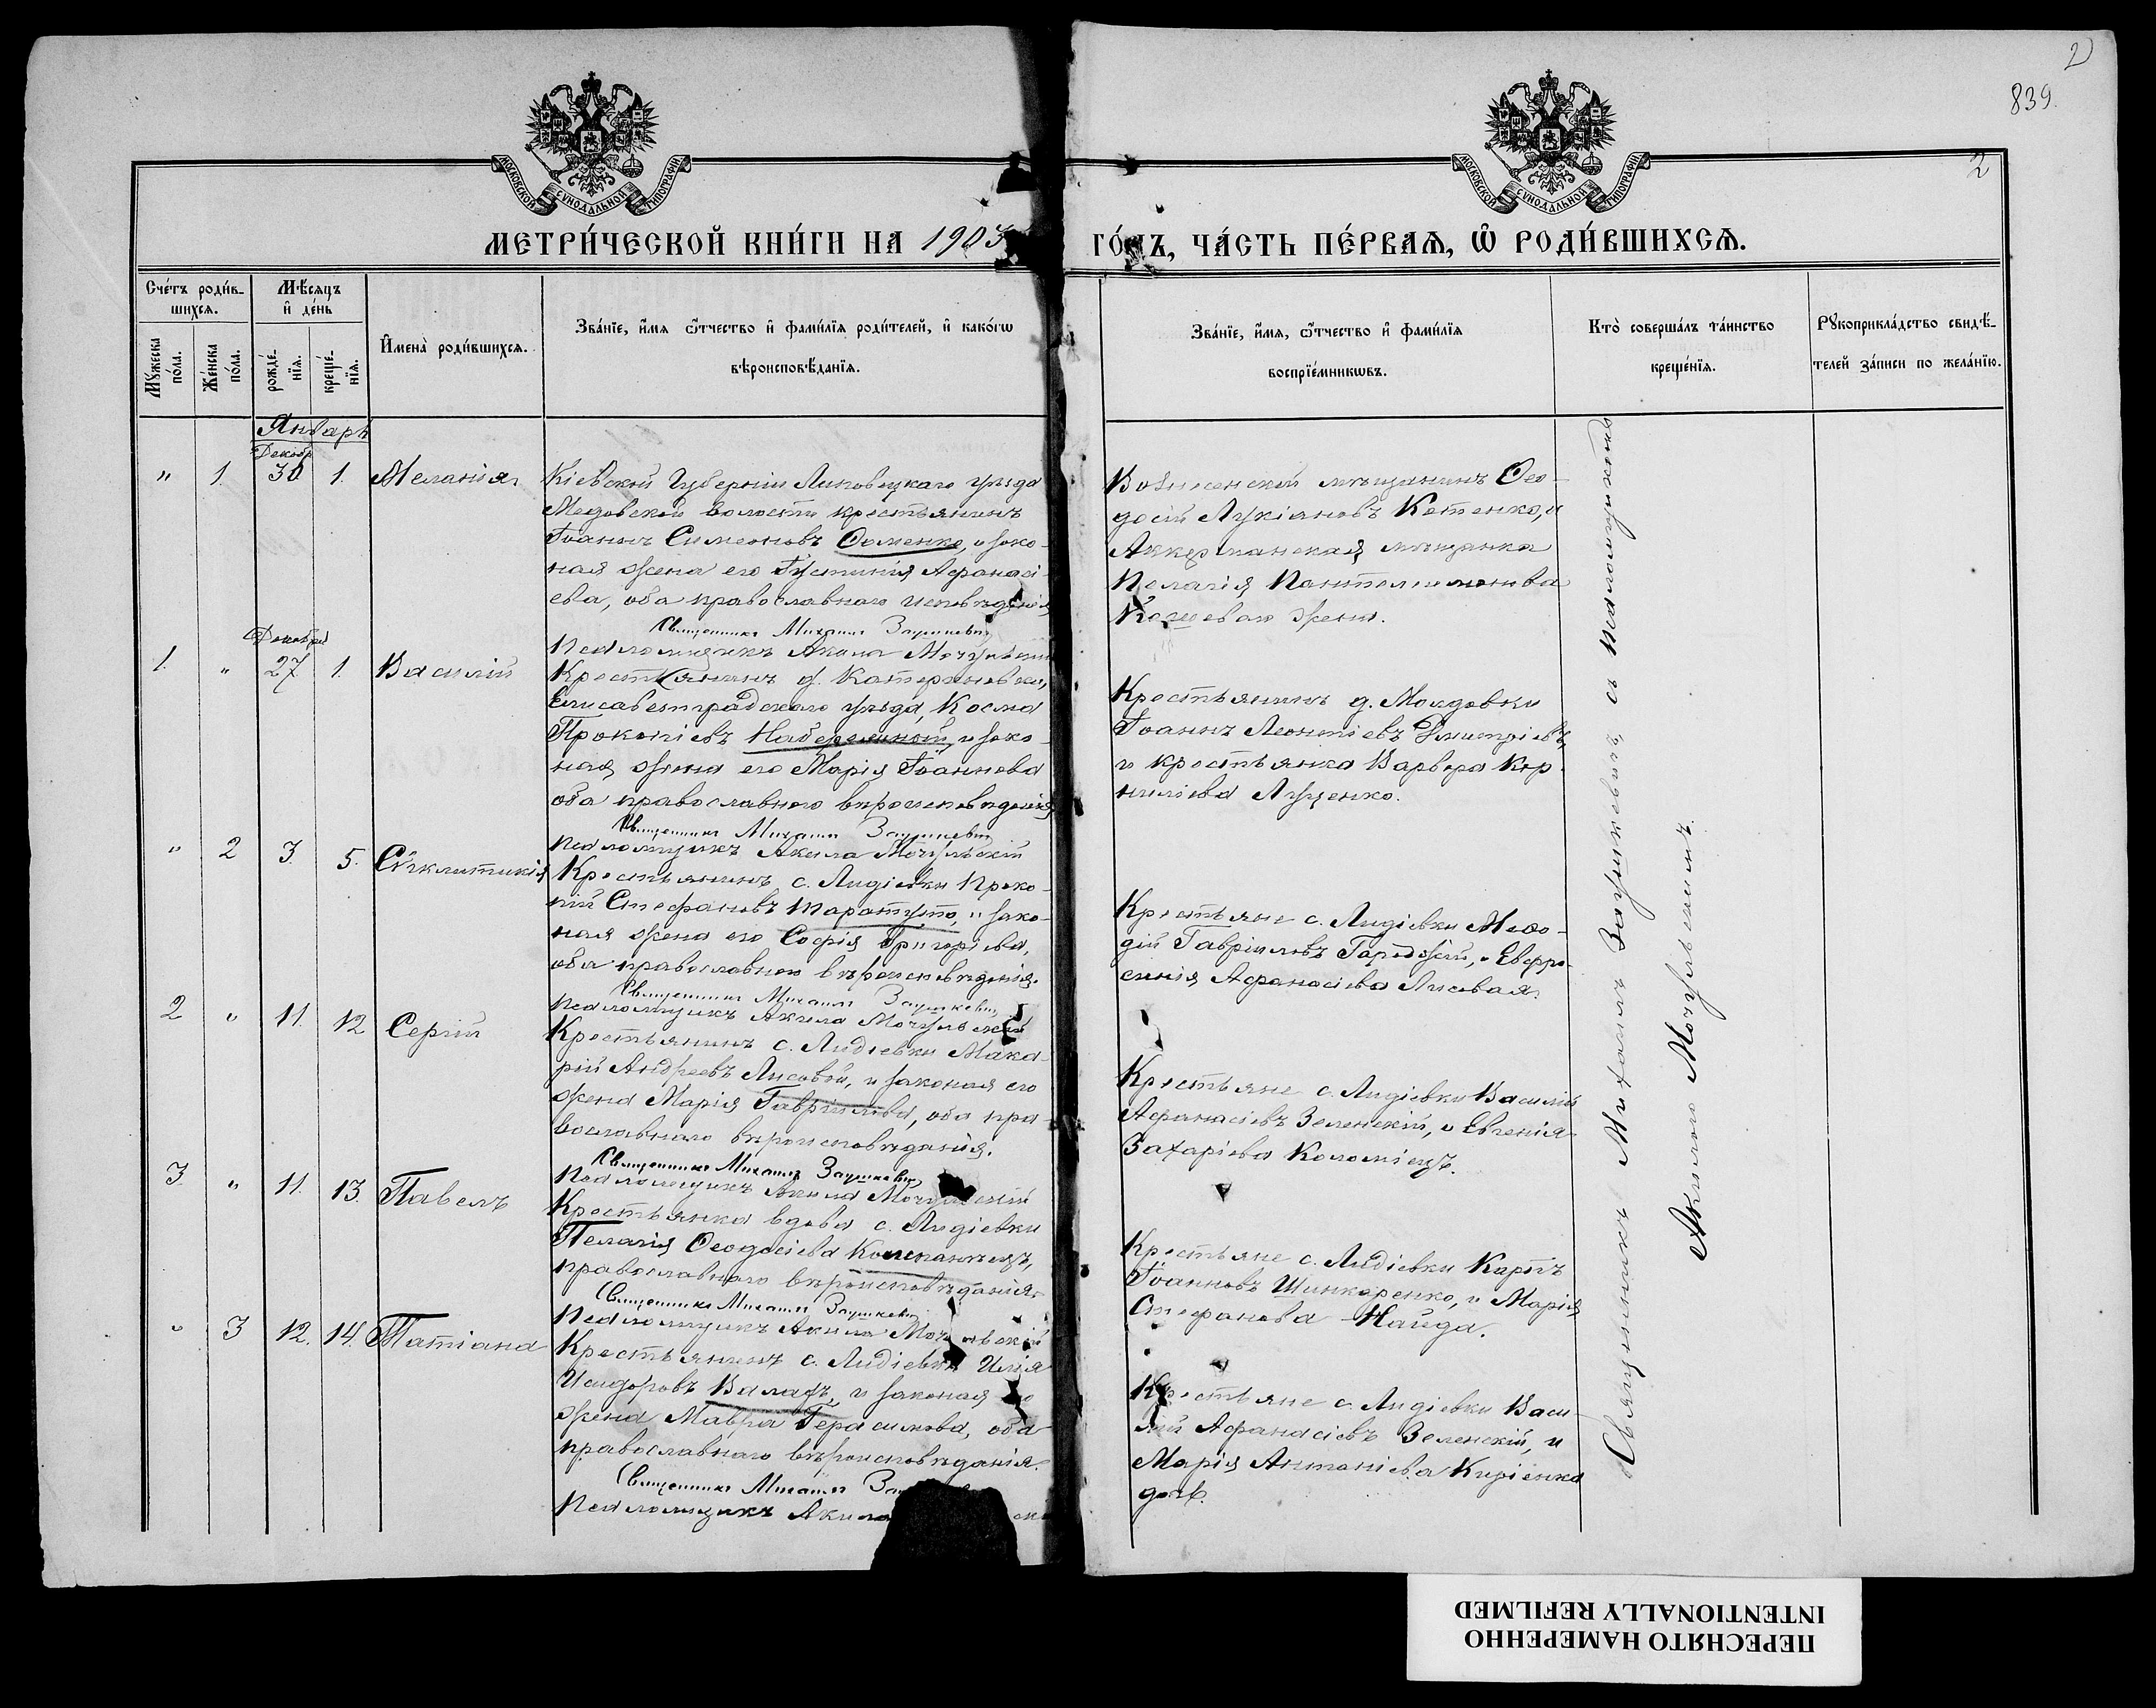 2
839.
2
МОСКОВСКОЙ СУНОДАЛЬНОЙ ТИПОГРАФІИ
МОСКОВСКОЙ СУНОДАЛЬНОЙ ТИПОГРАФІИ
МЕТРИ́ЧЕСКОЙ КНИ́ГИ НА 1903 ГО́ДЪ, ЧА́СТЬ ПЕ́РВАѦ, Ѡ РОДИ́ВШИХСѦ.
Сче́тъ роди́в-
шихсѧ.
Мѣ́сѧцъ
и҆ де́нь
Мꙋжеска
по́ла.
Же́нска
по́ла.
рожде́-
нїѧ.
креще́-
нїѧ.
И҆мена̀ роди́вшихсѧ.
Зва́нїе, и҆́мѧ ѻ҆́тчество и҆ фами́лїѧ роди́телей, и҆ како́гѡ
вѣроисповѣ́данїѧ.
Зва́нїе, и҆́мѧ, ѻ҆́тчество и҆ фами́лїѧ
воспрїе́мникѡвъ.
Кто̀ соверша́лъ та́инство
креще́нїѧ.
Рꙋкоприкла́дство свидѣ́-
телей за́писи по жела́нїю.
Январь
Декабр
" 1. 30 1. Меланія
Кіевской Губерніи Липовецкаго уѣзда
Медовской волости крестьянинъ
Іоаннъ Симеоновъ Ѳоменко, и зако-
ная жена его Іустинія Аѳанасі-
ева, оба православнаго исповѣданія
Священникъ Михаилъ Заушкевичъ
Псаломщикъ Акила Мочульскій
Вознесенскій мѣщанинъ Ѳео-
досій Лукіановъ Котенко, и
Аккерманская мѣщанка
Пелагія Пантелеимонова
Кошеваго жена.
Декабря
1. " 27 1. Василій
Крестьянинъ д. Катериновки,
Елисаветградскаго уѣзда, Косма
Прокопіевъ Набережный, и зако-
ная жена его Марія Іоаннова
оба православнаго вѣроисповѣданія
Священникъ Михаилъ Заушкевичъ
Псаломщикъ Акила Мочульскій
Крестьянинъ д. Молдовки
Іоаннъ Леонтіевъ Дмитріевъ,
и крестьянка Варвара Кор-
ниліева Луценко.
" 2 3. 5. Сѵнклитикія
Крестьянинъ с. Лидіевки Проко-
пій Стефановъ Таратута, и зако-
ная жена его Софія Григоріева,
оба православнаго вѣроисповѣданія.
Священникъ Михаилъ Заушкевичъ
Псаломщикъ Акила Мочульскій
Крестьяне с. Лидіевки Меѳо-
дій Гавріиловъ Городскій, и Евфро-
синія Аѳанасіева Лисовая.
2 " 11. 12 Сергій
Крестьянинъ с. Лидіевки Мака-
рій Андреевъ Лисовой, и законая его
жена Марія Гавріилова, оба пра-
вославнаго вѣроисповѣданія.
Священникъ Михаилъ Заушкевичъ
Псаломщикъ Акила Мочульскій
Крестьяне с. Лидіевки Василій
Аѳанасіевъ Зеленскій, и Евгенія
Захаріева Коломіецъ.
3 " 11. 13. Павелъ
Крестьянка вдова с. Лидіевки
Пелагія Ѳеодосіева Компаніецъ,
православнаго вѣроисповѣданія.
Священникъ Михаилъ Заушкевичъ
Псаломщикъ Акила Мочульскій
Крестьяне с. Лидіевки Карпъ
Іоанновъ Шинкаренко, и Марія
Стефанова Найда.
" 3 12. 14. Татіана
Крестьянинъ с. Лидіевки Илія
Исидоровъ Валахъ, и законая его
жена Мавра Герасимова, оба
православнаго вѣроисповѣданія.
Священникъ Михаилъ
Псаломщикъ Акила
Крестьяне с. Лидіевки Васи-
лій Аѳанасіевъ Зеленскій, и
Марія Антоніева Киріенко
дочь.
Священникъ Михаилъ Заушкевичъ, съ псаломщикомъ
Акилою Мочульскимъ.
ПЕРЕСНЯТО НАМЕРЕННО
INTENTIONALLY REFILMED